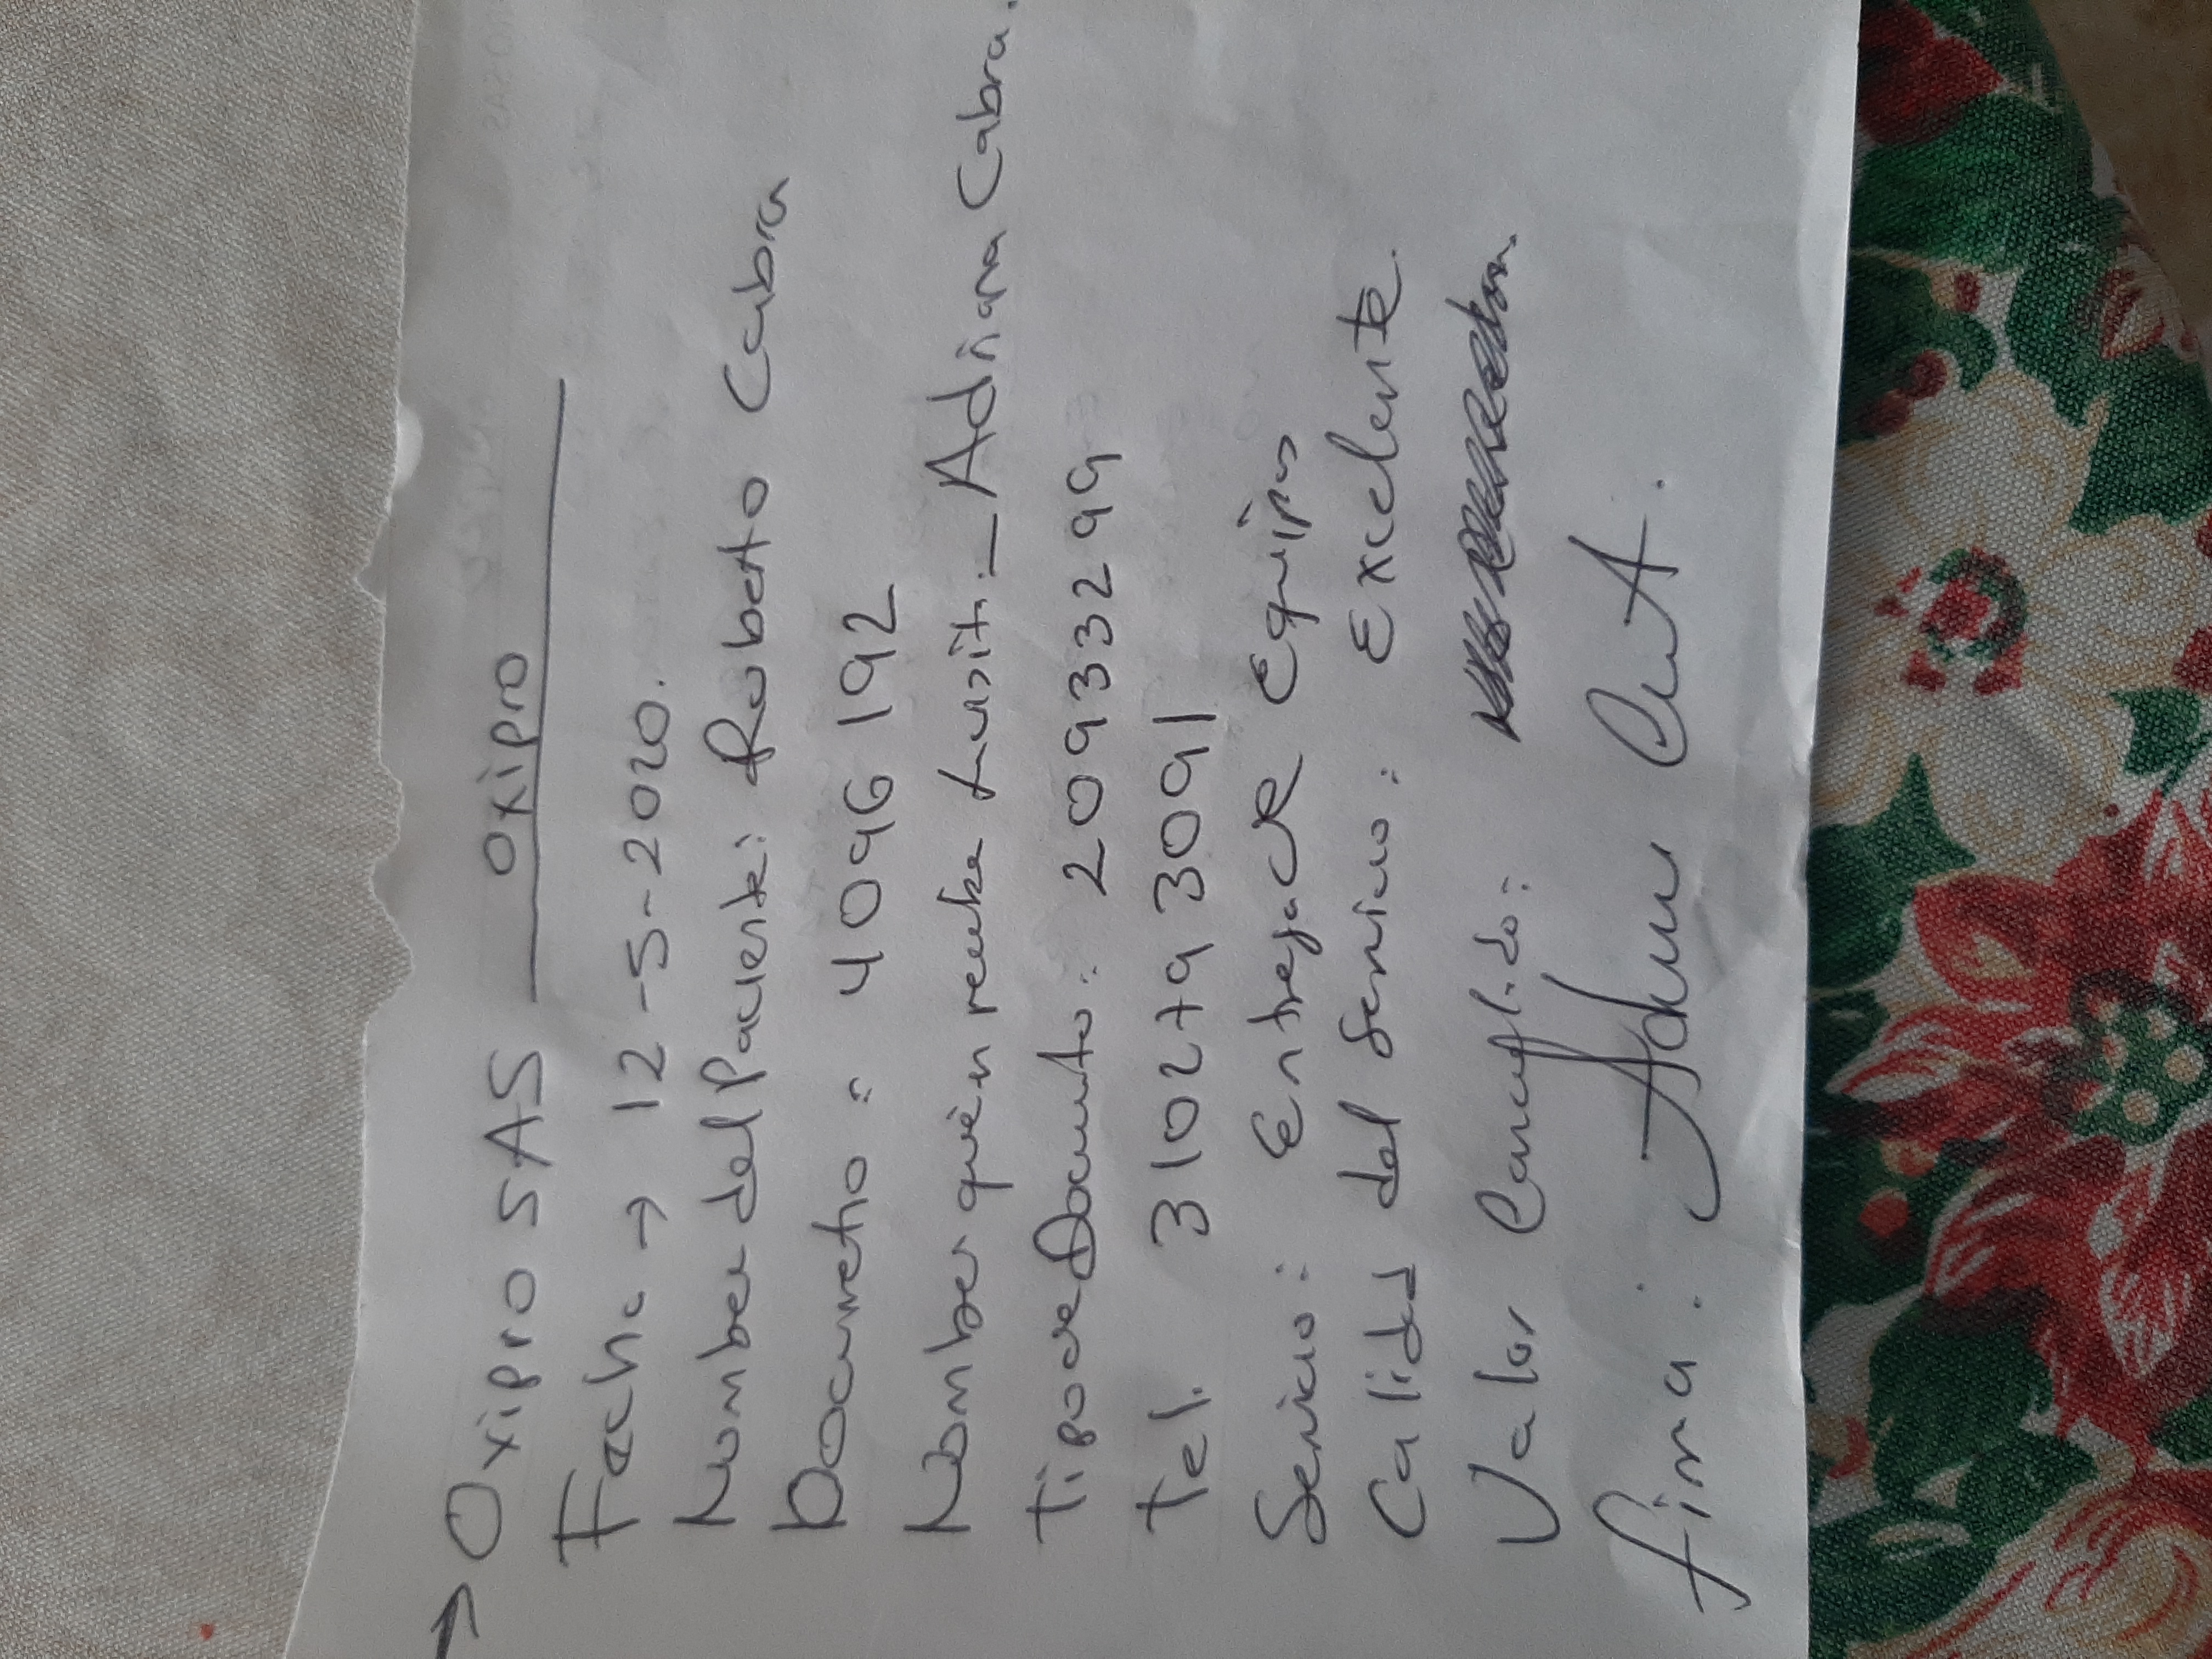 → Oxipro SAS oxipro
Fecha → 12-5-2020.
Nombre del Paciente: Roberto Cabra
Documetno: 4096192
Nombre quien recibe : Adriana Cabra.
Tipo de Documento: 20933299
Tel. 3102793091
Servicio: Entrega de Equipos
Calidad del Servicio: Excelente.
Valor Cancelado:
firma: